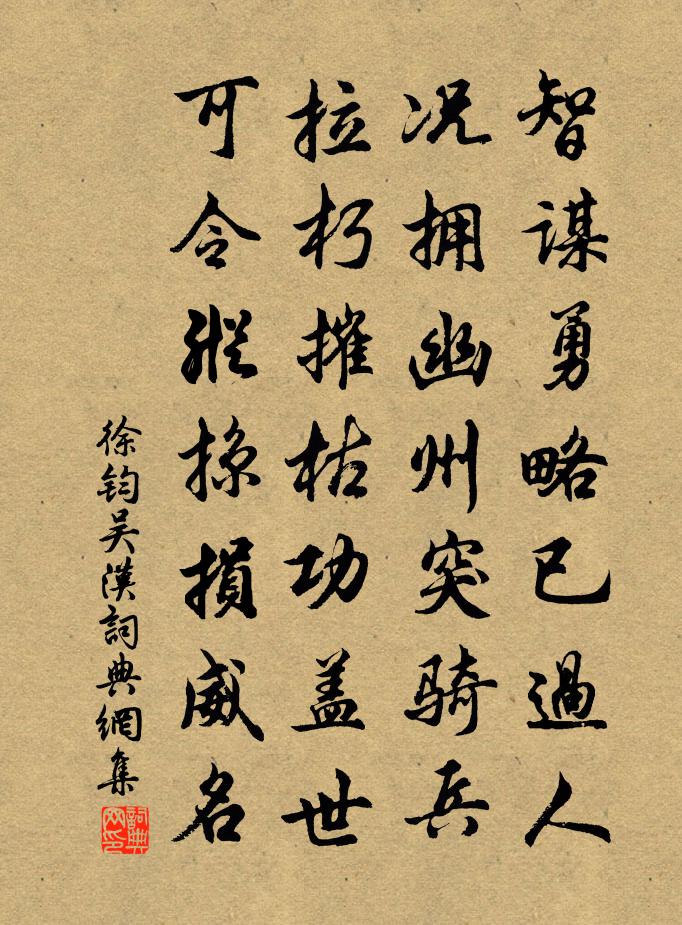 智謀勇略已過人
况拥幽州突骑兵
拉朽摧枯功盖世
可令縱掠損威名
徐钧吴漢詞典網集
詞典网印